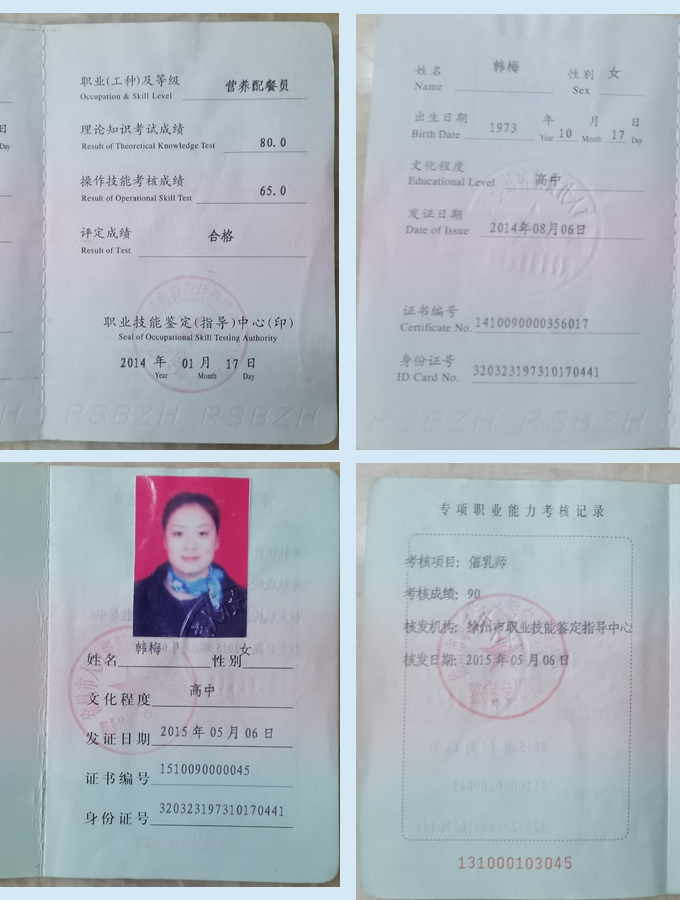 职业(工种)及等级 营养配餐员
Occupation & Skill Level
理论知识考试成绩
Result of Theoretical Knowledge Test 80.0
操作技能考核成绩
Result of Operational Skill Test 65.0
评定成绩 合格
Result of Test
职业技能鉴定(指导)中心(印)
Seal of Occupational Skill Testing Authority
2014 年 01 月 17 日
Year Month Day
RSBZH RSBZH
日
Day
姓名 韩梅 性别 女
Name Sex
出生日期 1973 年 10 月 17 日
Birth Date Year Month Day
文化程度
Educational Level 高中
发证日期
Date of Issue 2014年08月06日
证书编号
Certificate No. 1410090000356017
身份证号
ID Card No. 320323197310170441
RSBZH RSBZH
姓名 韩梅 性别 女
文化程度 高中
发证日期 2015 年 05 月 06 日
证书编号 1510090000045
身份证号 320323197310170441
专项职业能力考核记录
考核项目: 催乳师
考核成绩: 90
核发机构: 徐州市职业技能鉴定指导中心
核发日期: 2015 年 05 月 06 日
131000103045